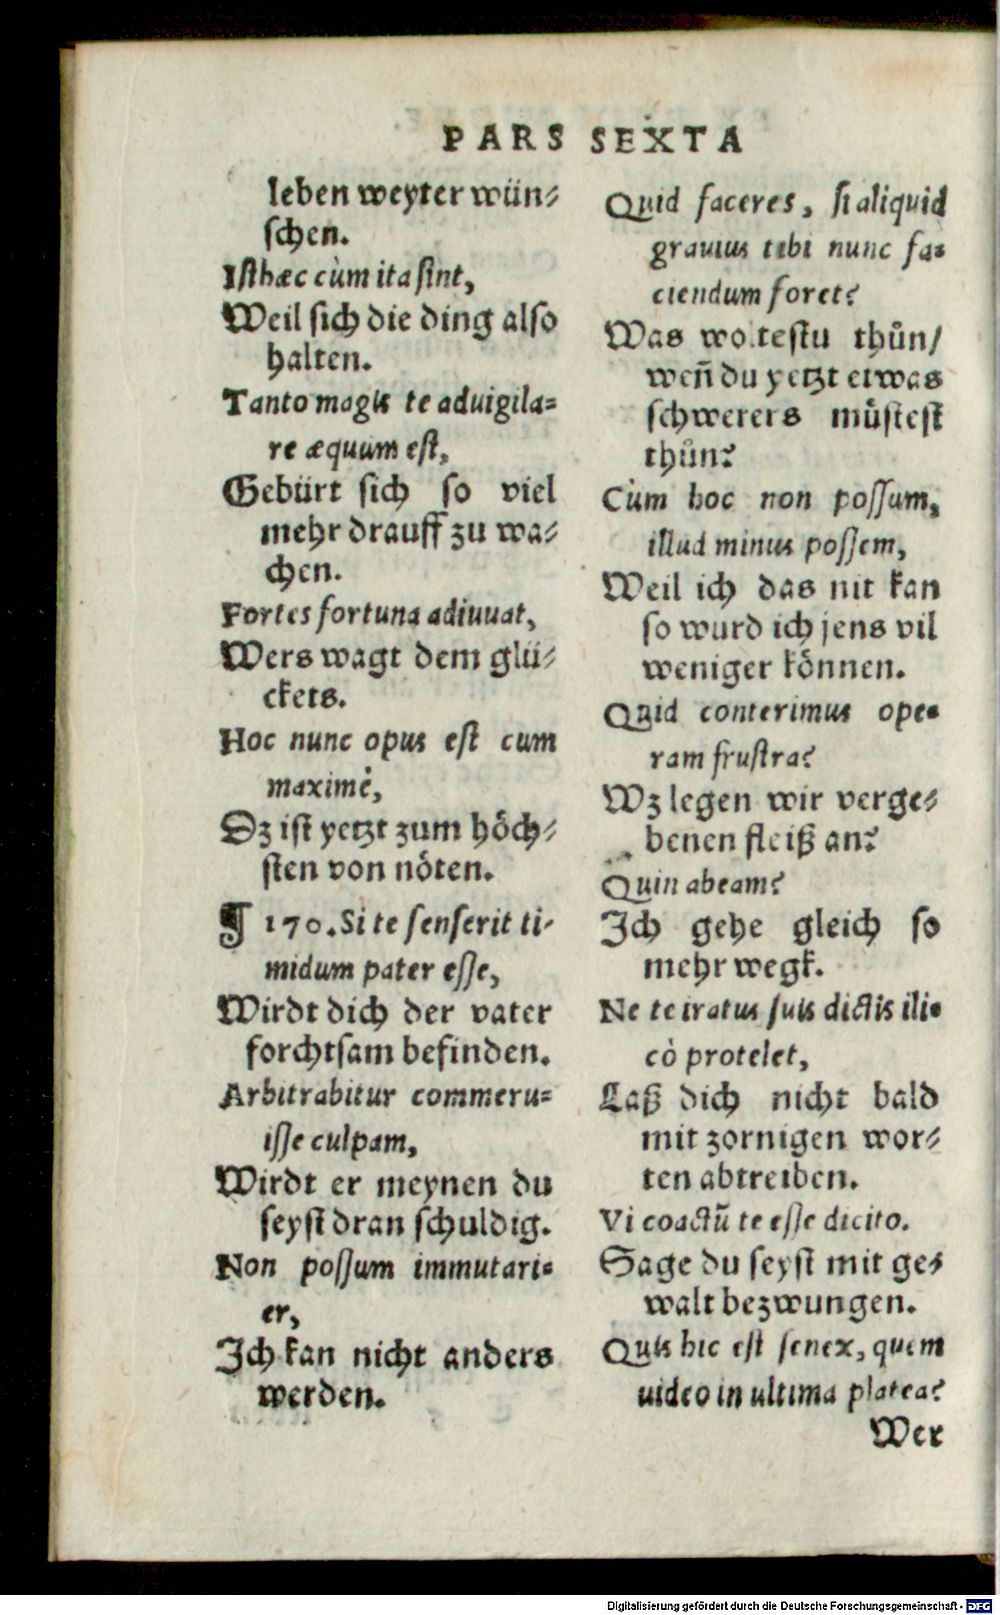 PARS SEXTA
leben weyter wün⸗
schen.
Isthæc cùm ita sint,
Weil sich die ding also
halten.
Tanto magis te aduigila=
re æquum est,
Gebürt sich so viel
mehr drauff zu wa⸗
chen.
Fortes fortuna adiuuat,
Wers wagt dem glü⸗
ckets.
Hoc nunc opus est cum
maximè,
Dz ist yetzt zum höch⸗
sten von nöten.
¶ 170. Si te senserit ti-
midum pater esse,
Wirdt dich der vater
forchtsam befinden.
Arbitrabitur commeru=
isse culpam,
Wirdt er meynen du
seyst dran schuldig.
Non possum immutari=
er,
Ich kan nicht anders
werden.
Quid faceres, si aliquid
grauius tibi nunc fa=
ciendum foret?
Was woltestu thůn/
weñ du yetzt etwas
schwerers müstest
thůn?
Cùm hoc non possum,
illud minus possem,
Weil ich das nit kan
so wurd ich jens vil
weniger können.
Quid conterimus ope=
ram frustra?
Wz legen wir verge⸗
benen fleiß an?
Quin abeam?
Ich gehe gleich so
mehr wegk.
Ne te iratus suis dictis ili=
cò protelet,
Laß dich nicht bald
mit zornigen wor⸗
ten abtreiben.
Vi coactũ te esse dicito.
Sage du seyst mit ge⸗
walt bezwungen.
Quis hic est senex, quem
uideo in ultima platea?
Wer
Digitalisierung gefördert durch die Deutsche Forschungsgemeinschaft - DFG